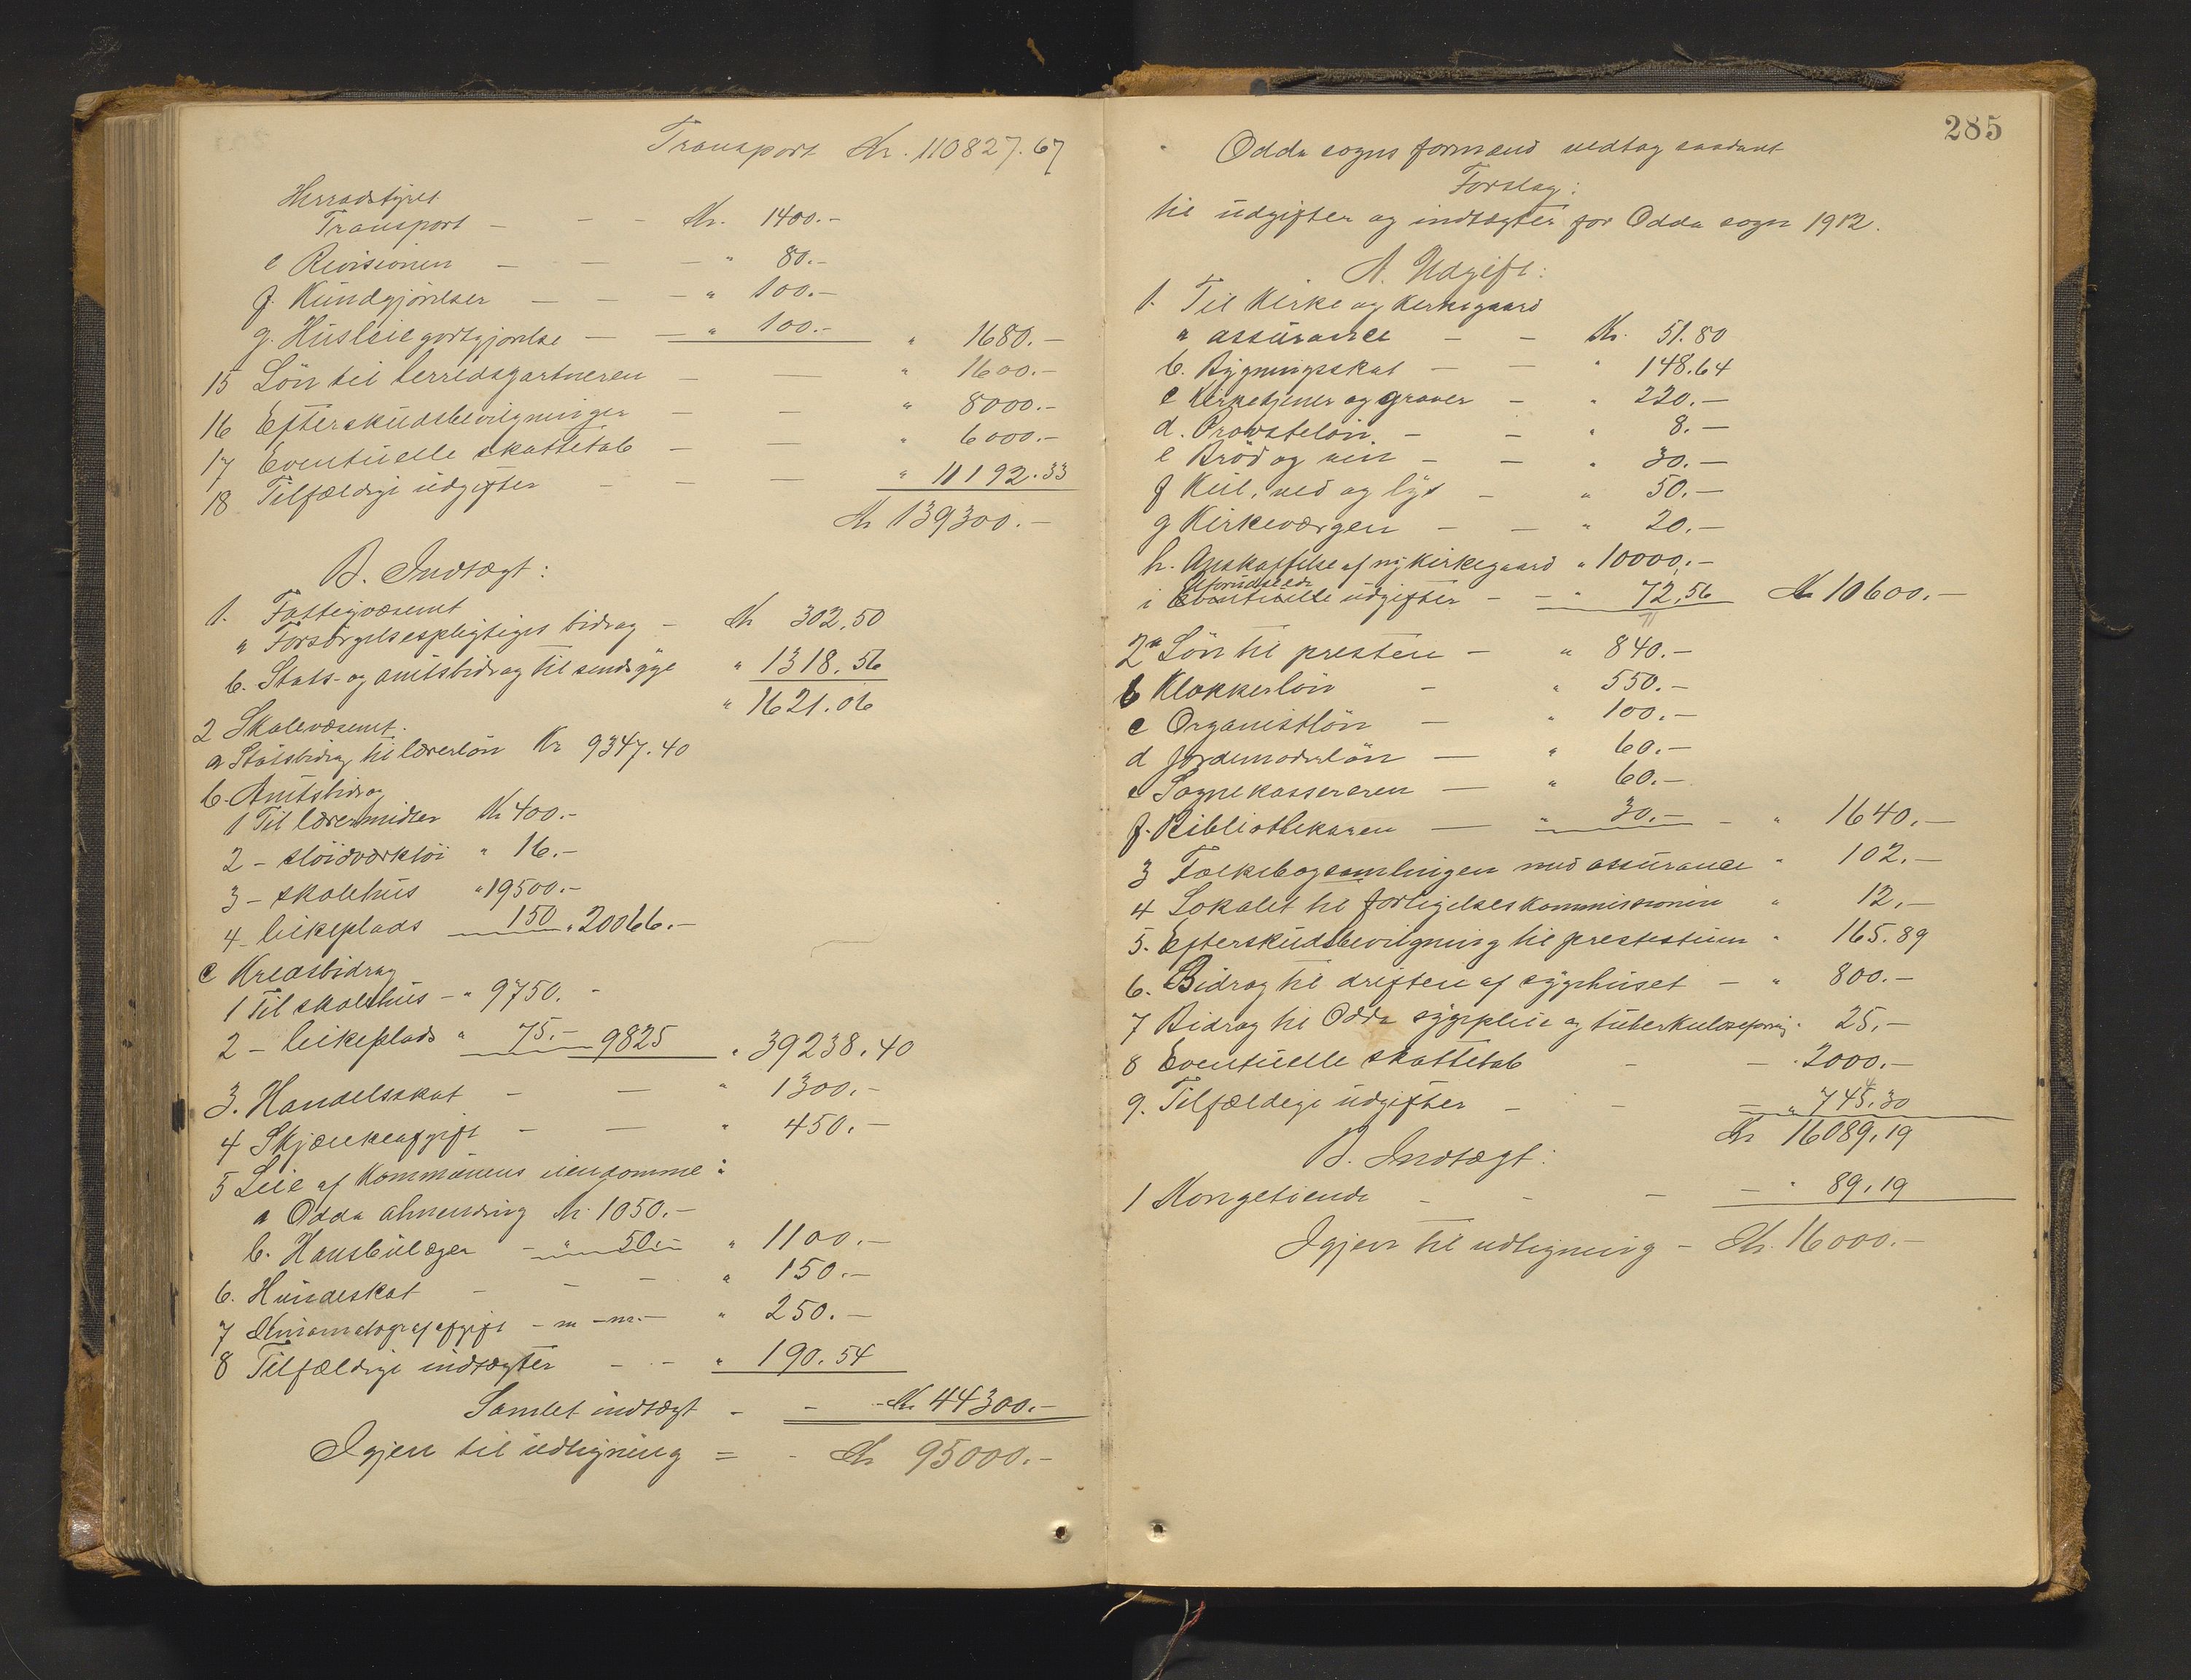 Transport Kr. 110827.67
Herradstyret
Transport - - - Kr. 1400.-
e Revisionen - - - " 80.-
f. Kundgjörelser - - - " 100.-
g. Husleiegodtgjörelse - - " 100.- " 1680.-
15 Lön til herredsgartneren - - " 1600.-
16 Efterskudsbevilgninger - - " 8000.-
17 Eventuelle skattetab - - " 6000.-
18 Tilfældige udgifter - - - " 11192.33
Kr 139300.-
B. Indtægt:
1. Fattigvæsenet
a Forsörgelsespligtiges bidrag - Kr 302,50
b. Stats- og amtsbidrag til sindsyge " 1318.56
" 1621.06
2 Skolevæsenet.
a Statsbidrag til lærerlön Kr 9347.40
b. Amtsbidrag
1 Til læremidler Kr 400.-
2 - slöidværktöi " 16.-
3 - skolehus " 19500.-
4 - leikeplads 150 " 20066.-
c Kredsbidrag
1 Til skolehus - " 9750.-
2 - leikeplads " 75.- 9825 " 39238.40
3. Handelsskat - - " 1300.-
4 Skjænkeafgift - - " 450.-
5 Leie af kommunens eiendomme:
a Odda almending Kr. 1050.-
b. Hansbulæger - " 50.- " 1100.-
6. Hundeskat - - - " 150.-
7 Kinematografafgift - m - m. - " 250.-
8 Tilfældige indtægter - - " 190.54
Samlet indtægt - - - Kr 44300.-
Igjen til udligning = - Kr 95000.-
285
Odda sogns formænd vedtog saadant
Forslag:
til udgifter og indtægter for Odda sogn 1912.
A. Udgift:
1. Til Kirke og kirkegaard
a assurance - - Kr. 51.80
b. Bygningsskat - - " 148.64
c Kirketjener og graver - " 220.-
d. Provstelön. - - " 8.-
e Bröd og vin - - " 30.-
f Kul, ved og lys - " 50.-
g Kirkeværgen - - " 20.-
h. Anskaffelse af ny kirkegaard " 10000.-
Uforudseede
i Eventuelle udgifter - - " 72,56 Kr 10600.-
2 a Lön til presten - " 840.-
b Klokkerlön - " 550.-
c Organistlön - " 100.-
d Jordemoderlön - " 60.-
e Sognekassereren - " 60.-
f. Bibliothekaren - " 30.- - " 1640.-
3 Folkebogsamlingen med assurance " 102.-
4 Lokalet til forligelseskommissionen " 12.-
5. Efterskudsbevilgning til prestestuen " 165.89
6. Bidrag til driften af sygehuset - " 800.-
7 Bidrag til Odda sygepleie og tuberkuloseforening " 25.-
8 Eventuelle skattetab - - " 2000.-
9. Tilfældige udgifter - - - " 745.30
Kr 16089,19
B. Indtægt:
1 Kongetiende - - - - " 89,19
Igjen til udligning - Kr. 16000.-